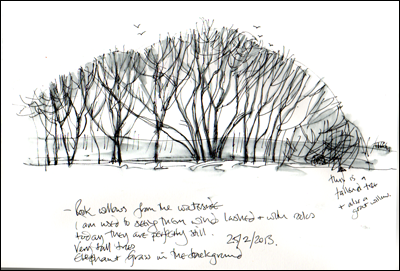 this is a
fallen tree
+ also a
great
- willows from the waterside
I am used to seeing them wind lashed + with
today they are perfectly still. 25/2/2013.
Very tall trees
Elephant grass in the background